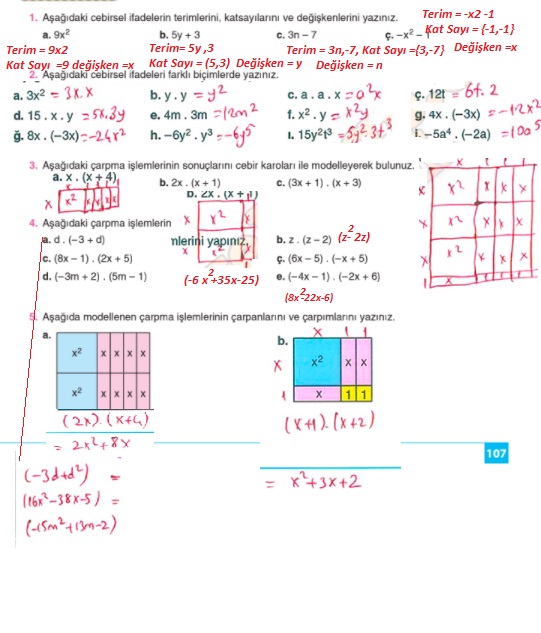 1. Aşağıdaki cebirsel ifadelerin terimlerini, katsayılarını ve değişkenlerini yazınız.
a. 9x² b. 5y + 3 c. 3n – 7 ç. –x² – 1
Terim = -x2 -1
Kat Sayı = {-1,-1}
Terim = 9x2 Terim= 5y ,3 Terim = 3n,-7, Kat Sayı ={3,-7} Değişken =x
Kat Sayı =9 değişken =x Kat Sayı = (5,3) Değişken = y Değişken = n
2. Aşağıdaki cebirsel ifadeleri farklı biçimlerde yazınız.
a. 3x² = 3x.x b. y . y = y² c. a . a . x = a²x ç. 12t = 6t.2
d. 15 . x . y = 5x.3y e. 4m . 3m = 12m² f. x² . y = x²y g. 4x . (–3x) = -12x²
ğ. 8x . (–3x) = -24x² h. –6y² . y³ = -6y⁵ ı. 15y²t³ = 5y².3t³ i. –5a⁴ . (–2a) = 10a⁵
3. Aşağıdaki çarpma işlemlerinin sonuçlarını cebir karoları ile modelleyerek bulunuz.
a. x . (x + 4) b. 2x . (x + 1) c. (3x + 1) . (x + 3)
x 1 1 1 1
x x² x x x x
b. 2x . (x + 1)
x x² x
x x² x
x 1 1 1
x x² x x x
x x² x x x
x x² x x x
1 x
4. Aşağıdaki çarpma işlemlerin
nlerini yapınız.
a. d . (–3 + d) b. z . (z – 2) (z²- 2z)
c. (8x – 1) . (2x + 5) ç. (6x – 5) . (–x + 5)
(-6 x²+35x-25)
d. (–3m + 2) . (5m – 1) e. (–4x – 1) . (–2x + 6)
(8x²-22x-6)
5. Aşağıda modellenen çarpma işlemlerinin çarpanlarını ve çarpımlarını yazınız.
a.
x² x x x x
x² x x x x
(2x).(x+4)
= 2x²+8x
b.
x 1 1
x x² x x
1 x 1 1
(x+1).(x+2)
= x²+3x+2
107
(-3d+d²) =
(16x²-38x-5) =
(-15m²+13m-2)